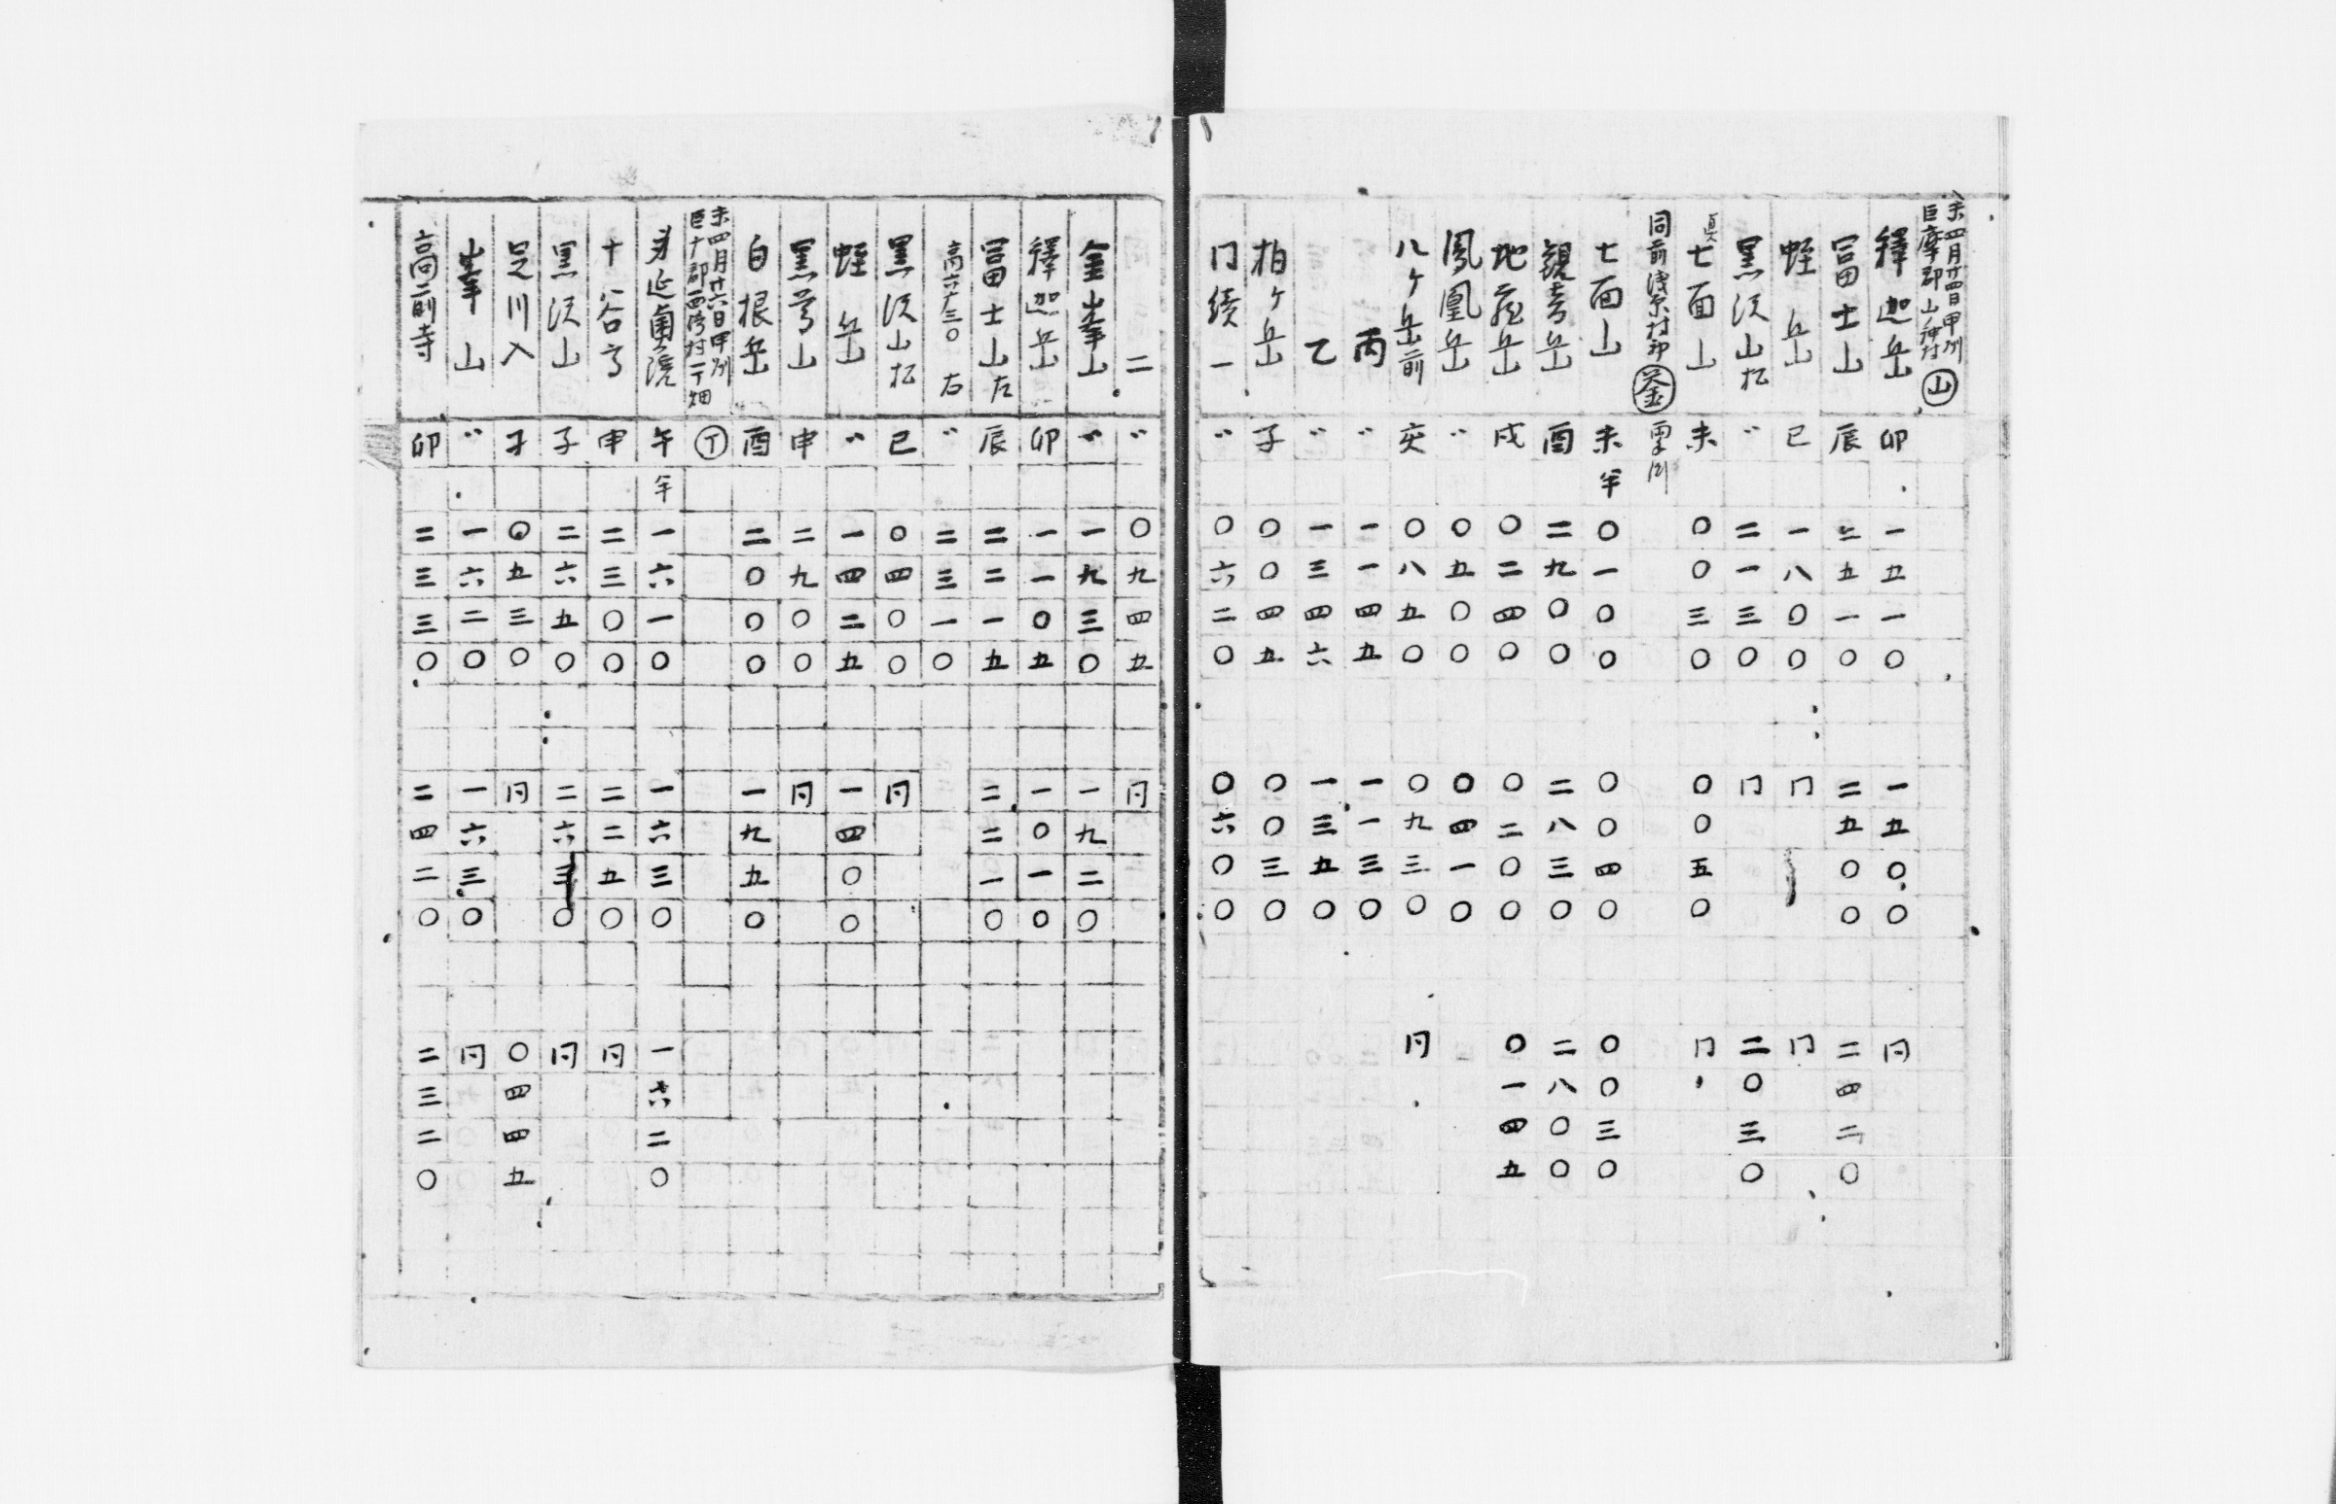 未四月廿四日甲州
巨摩郡山ノ神村 山
釋迦岳 卯 一五一〇 一五〇〇 同
冨士山 辰 二五一〇 二五〇〇 二四二〇
蛭岳 巳 一八〇〇 同 同
黒沢山松 〃 二一三〇 同 二〇三〇
七面山 未 〇〇三〇 〇〇五〇 同
同前浅原村卯 釜
七面山 未 半 〇一〇〇 〇〇四〇 〇〇三〇
観音岳 酉 二九〇〇 二八三〇 二八〇〇
地蔵岳 戌 〇二四〇 〇二〇〇 〇一四五
鳳凰岳 〃 〇五〇〇 〇四一〇
八ヶ岳前 亥 〇八五〇 〇九三〇 同
丙 〃 一一四五 一一三〇
乙 〃 一三四六 一三五〇
柏ヶ岳 子 〇〇四五 〇〇三〇
同続一 〃 〇六二〇 〇六〇〇
二 〃 〇九四五 同
金峯山 〃 一九三〇 一九二〇
釋迦岳 卯 一一〇五 一〇一〇
冨士山左 辰 二二一五 二二一〇
高六十三〇 右 〃 二三一〇
黒沢山松 巳 〇四〇〇 同
蛭岳 〃 一四二五 一四〇〇
黒 山 申 二九〇〇 同
白根岳 酉 二〇〇〇 一九五〇
未四月廿六日甲州
巨十郡西 村一丁畑 丁
身延奥院 午 半 一六一〇 一六三〇 一六二〇
十谷 申 二三〇〇 二二五〇 同
黒沢山 子 二六五〇 二六三〇 同
早川入 才 〇五三〇 同 〇四四五
峯山 〃 一六二〇 一六三〇 同
高前寺 卯 二三三〇 二四二〇 二三二〇